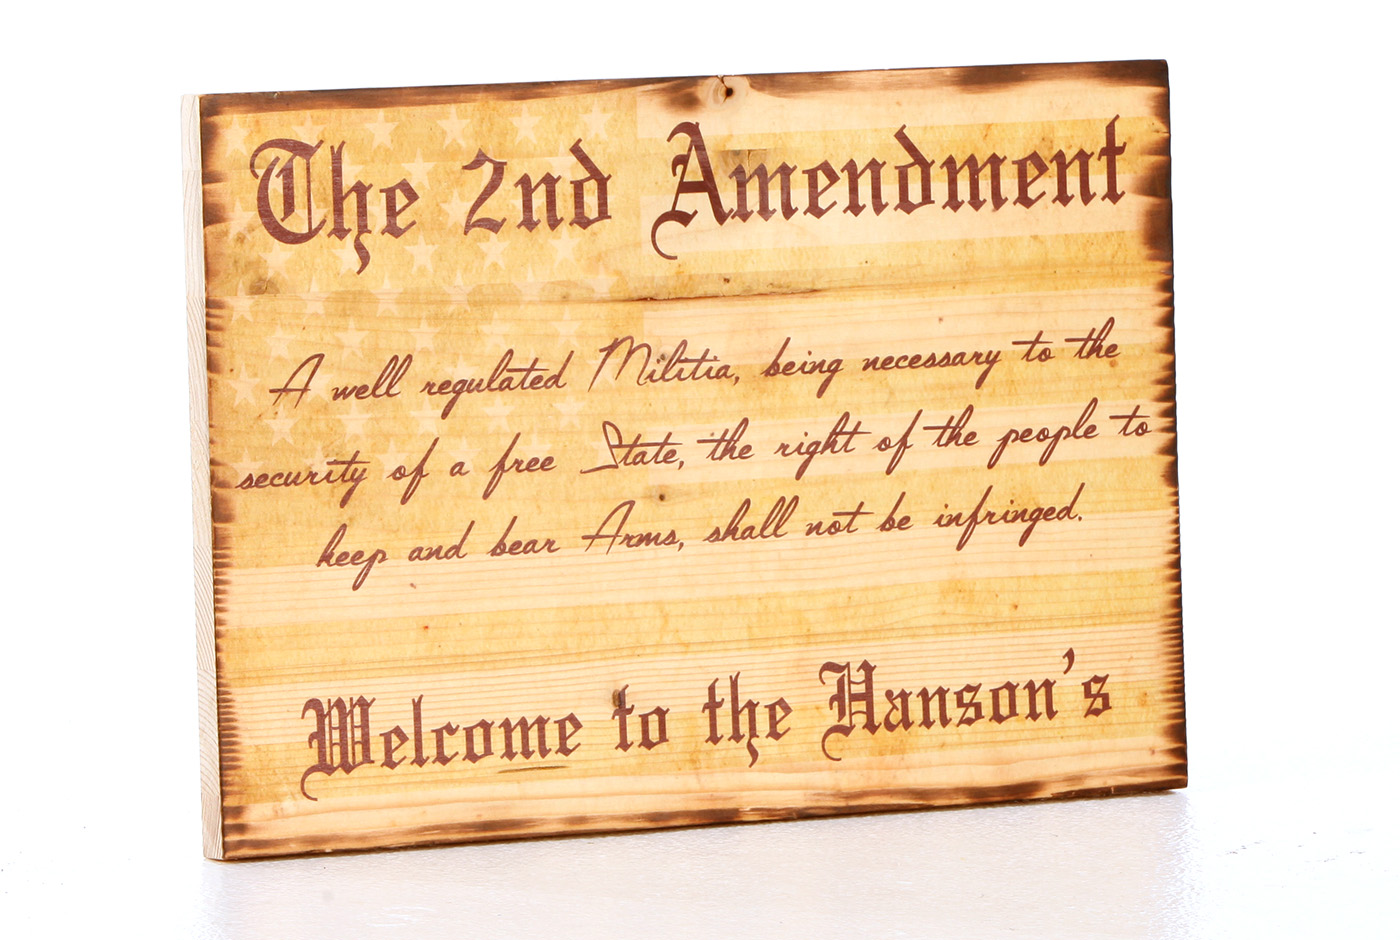 The 2nd Amendment
A well regulated Militia, being necessary to the
security of a free State, the right of the people to
keep and bear Arms, shall not be infringed.
Welcome to the Hanson's